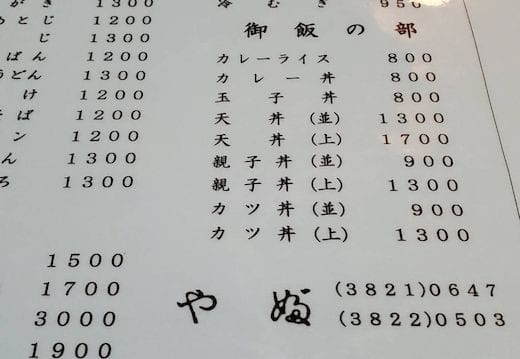 がき 1300
とじ 1200
じ 1300
ばん 1200
うどん 1300
け 1200
そば 1200
ン 1200
ん 1300
ろ 1300
1500
1700
3000
1900
冷むぎ 950
御飯の部
カレーライス 800
カレー丼 800
玉子丼 800
天丼(並) 1300
天丼(上) 1700
親子丼(並) 900
親子丼(上) 1300
カツ丼(並) 900
カツ丼(上) 1300
やぶ
(3821)0647
(3822)0503